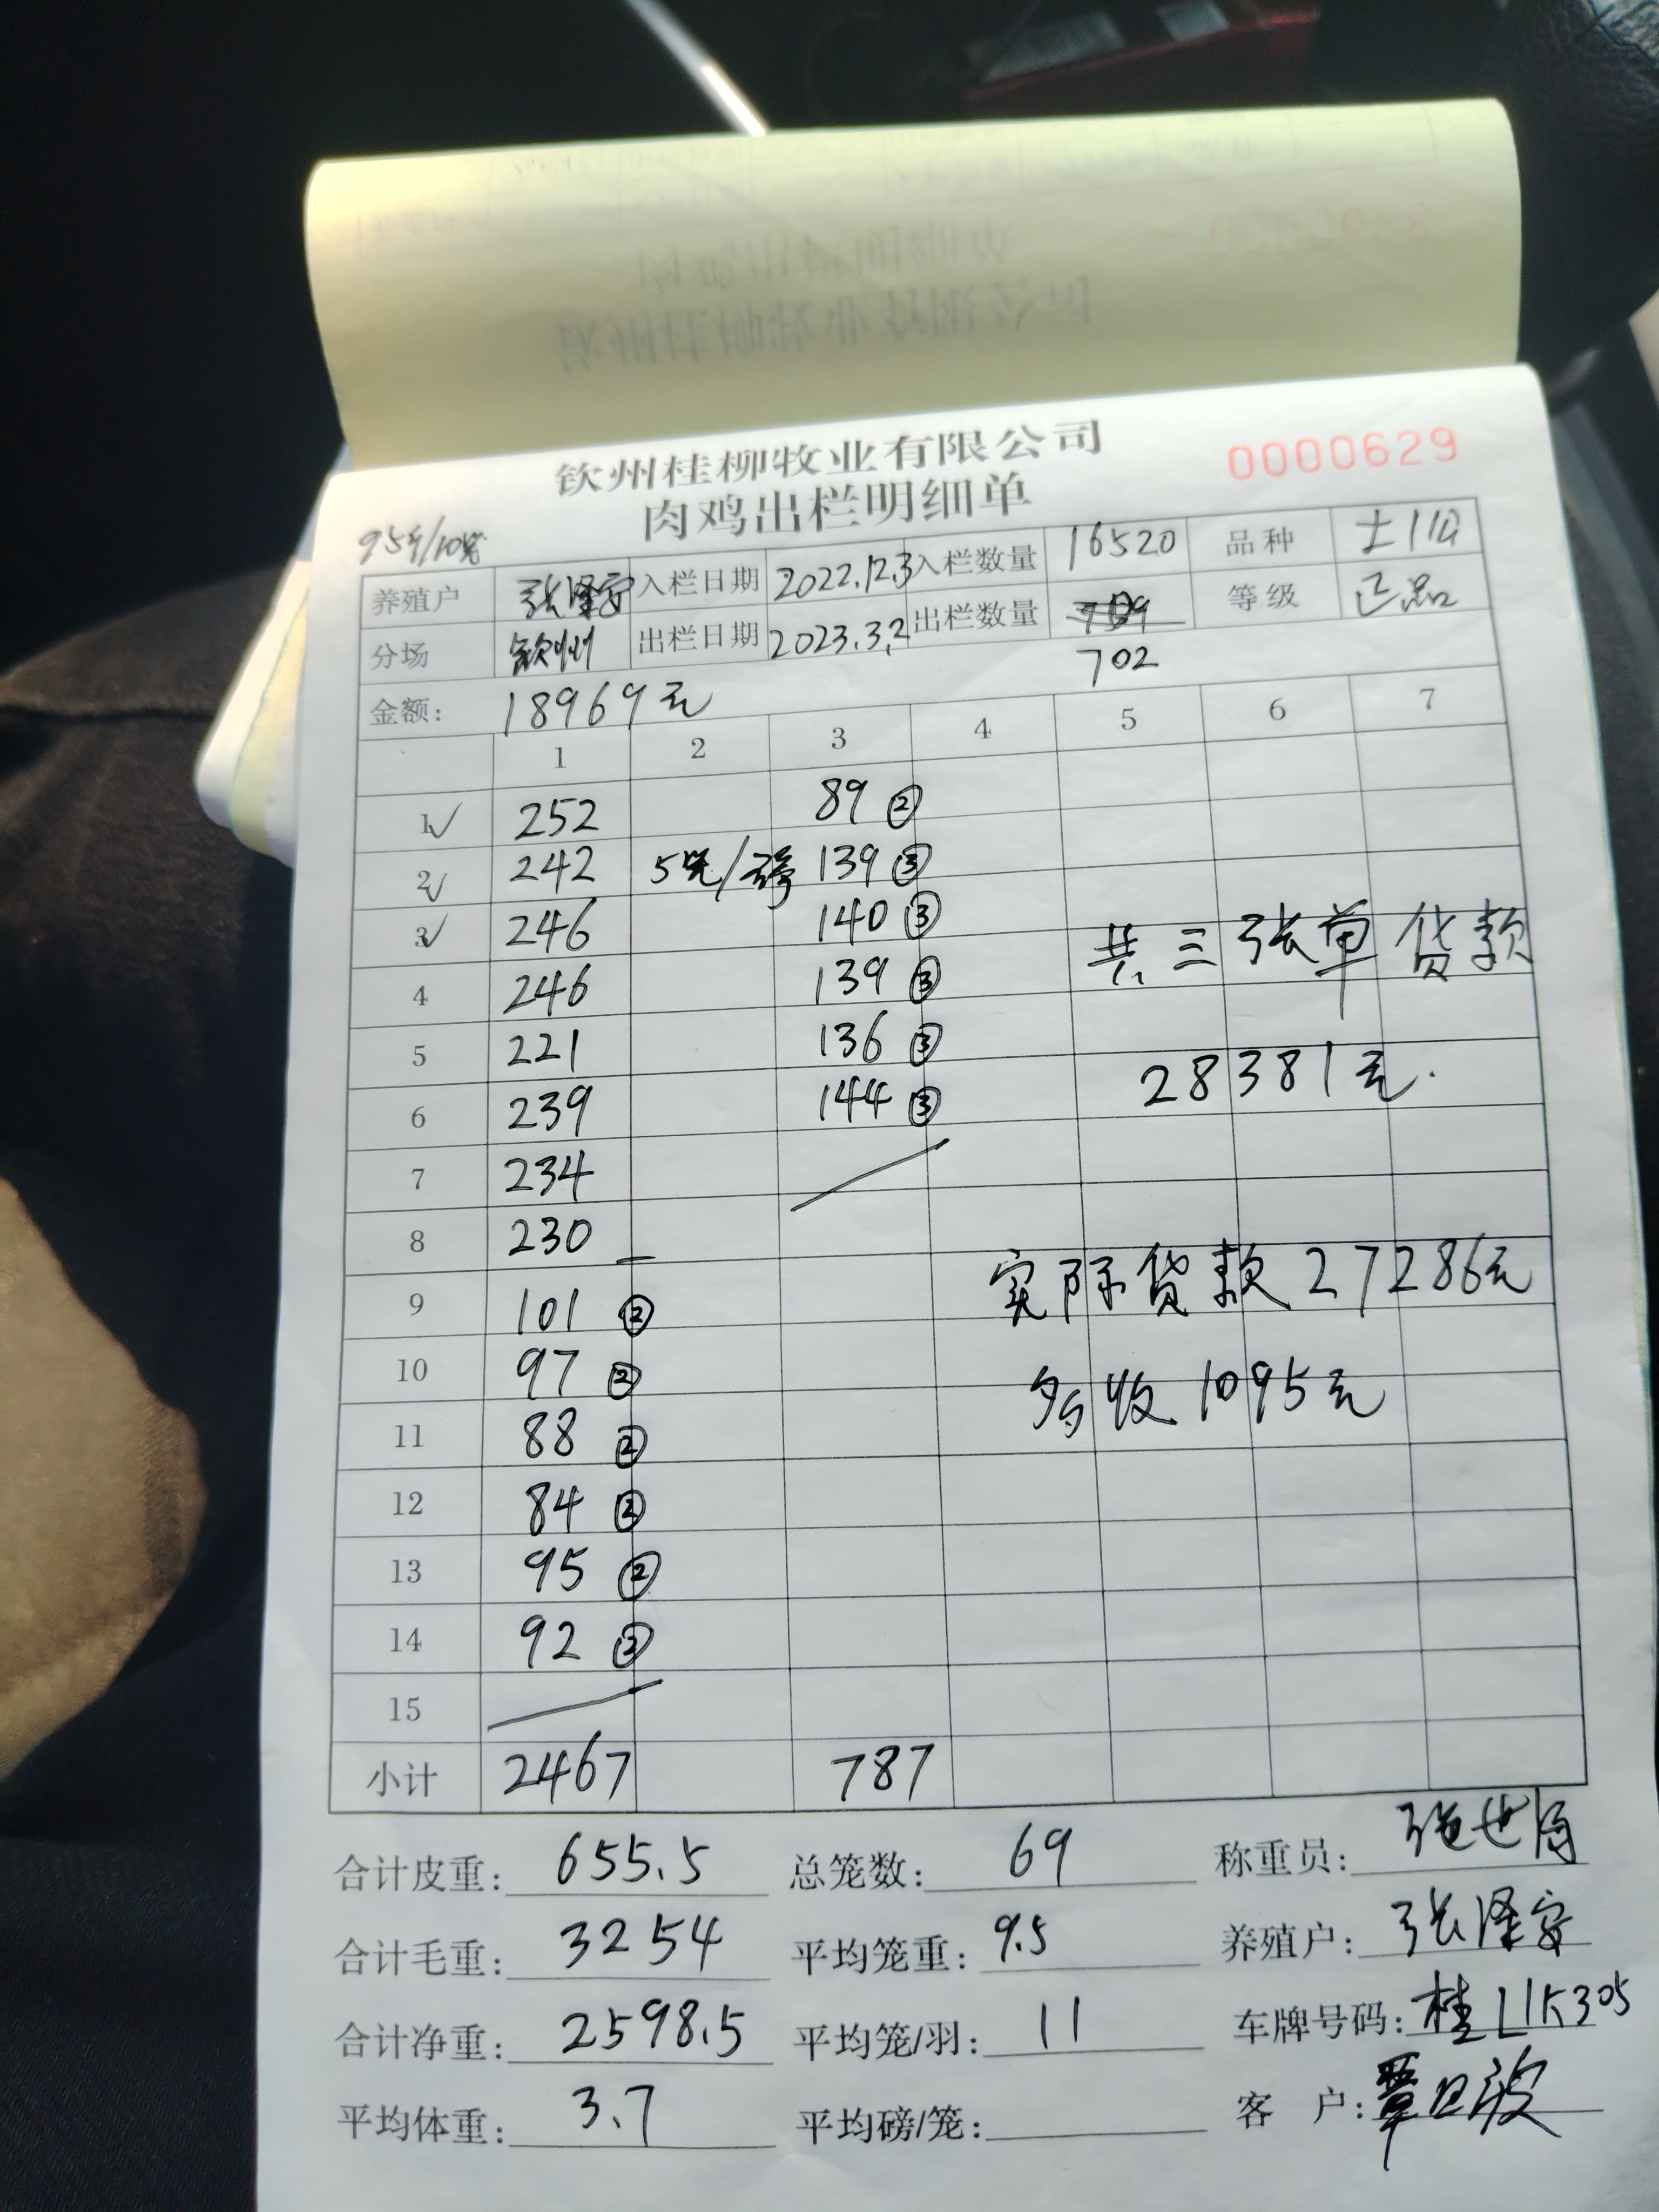 钦州桂柳牧业有限公司
0000629
肉鸡出栏明细单
95斤/10笼
养殖户 张泽安 入栏日期 2022.12.3 入栏数量 16520 品种 土11a
分场 钦州 出栏日期 2023.3.2 出栏数量 702 等级 正品
金额: 18969元
1 2 3 4 5 6 7
1✓ 252 89 ②
2✓ 242 5笼/磅 139 ③
3✓ 246 140 ③
共三张单货款
4 246 139 ③
5 221 136 ③
28381元.
6 239 144 ③
7 234
8 230
实际货款27286元
9 101 ②
10 97 ②
多收1095元
11 88 ②
12 84 ②
13 95 ②
14 92 ②
15
小计 2467 787
合计皮重: 655.5 总笼数: 69 称重员:
合计毛重: 3254 平均笼重: 9.5 养殖户: 张泽安
合计净重: 2598.5 平均笼/羽: 11 车牌号码: 桂L1K305
平均体重: 3.7 平均磅/笼: 客户: